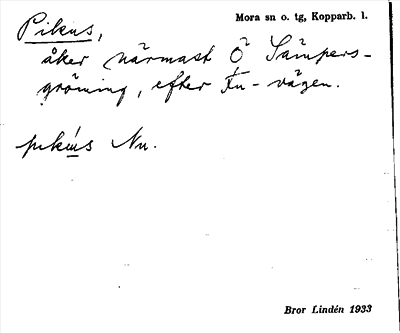 Pikus,
Mora sn o. tg, Kopparb. l.
åker närmast Ö Sämpers-
gröning, efter -vägen.
pikus Nu.
Bror Lindén 1933